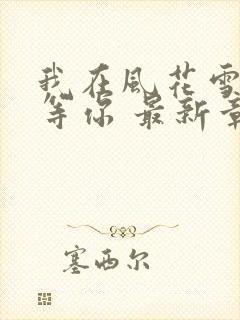 我在風花雪
等你 最新章
塞西尔